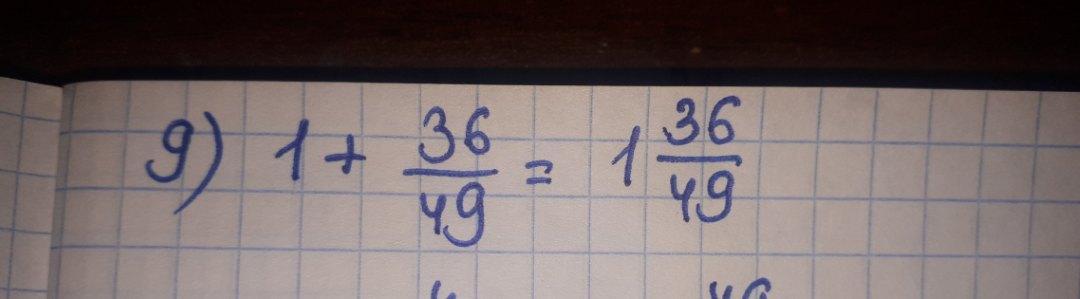 9) 1 + 36/49 = 1 36/49